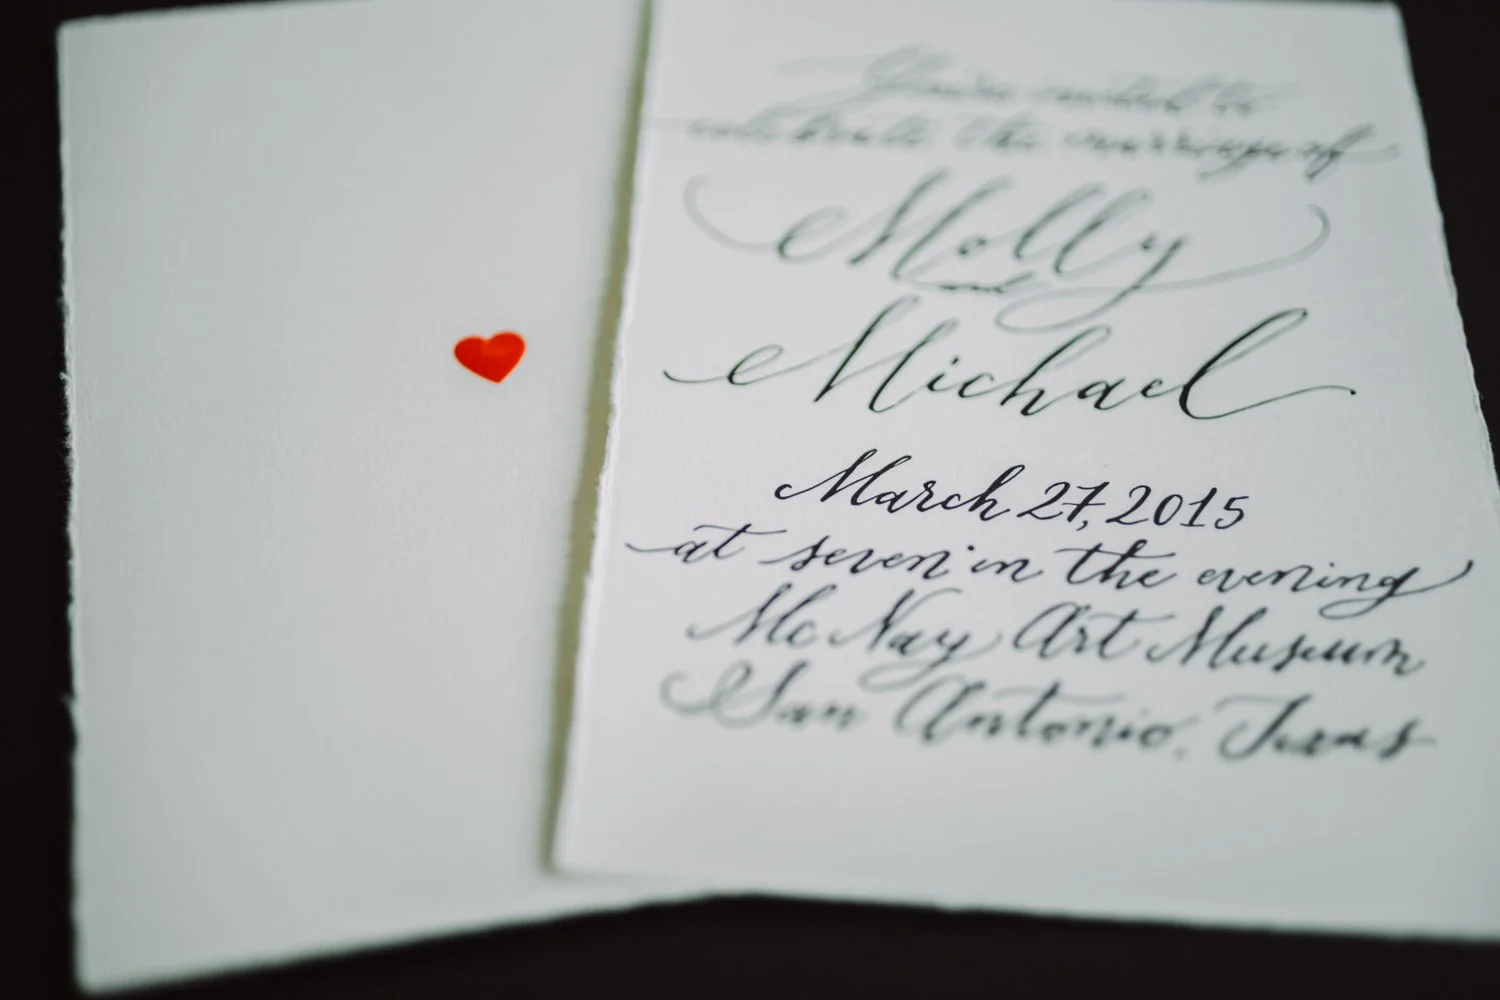 You're invited to
celebrate the marriage of
Molly
and
Michael
March 27, 2015
at seven in the evening
McNay Art Museum
San Antonio, Texas